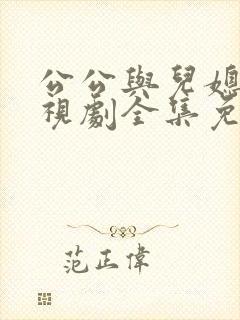 公公與兒媳
視劇全集免
范正偉